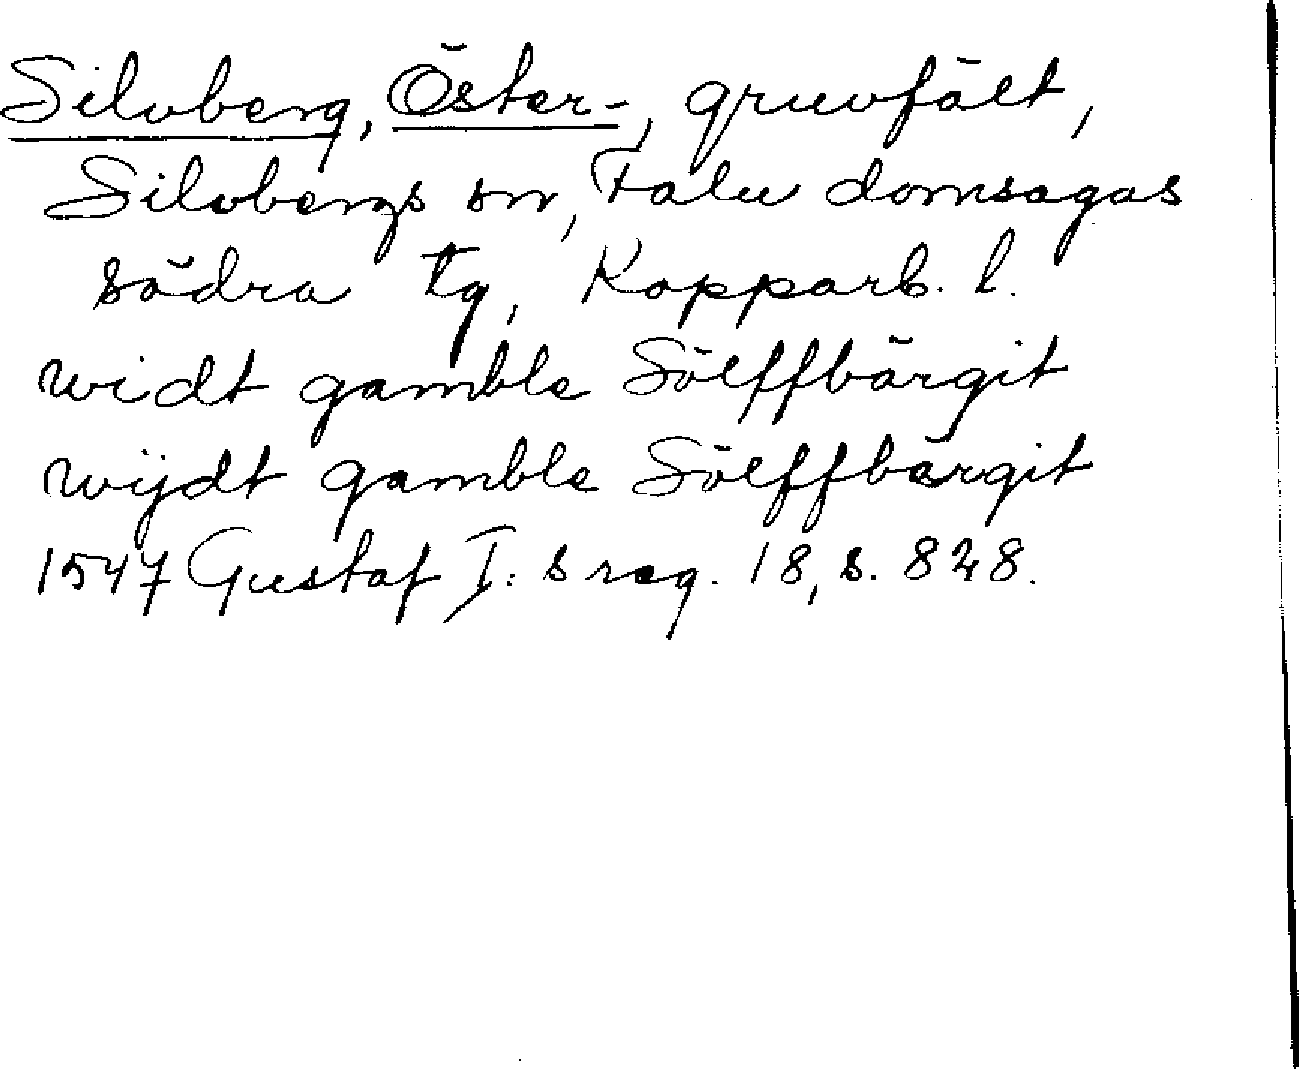 Silvberg, Öster-, gruvfält,
Silvbergs sn, Falu domsagas
södra tg, Kopparb. l.
widt gamble Sölffbärgit
wÿdt gamble Sölffbärgit
1547 Gustaf I:s reg. 18, s. 828.